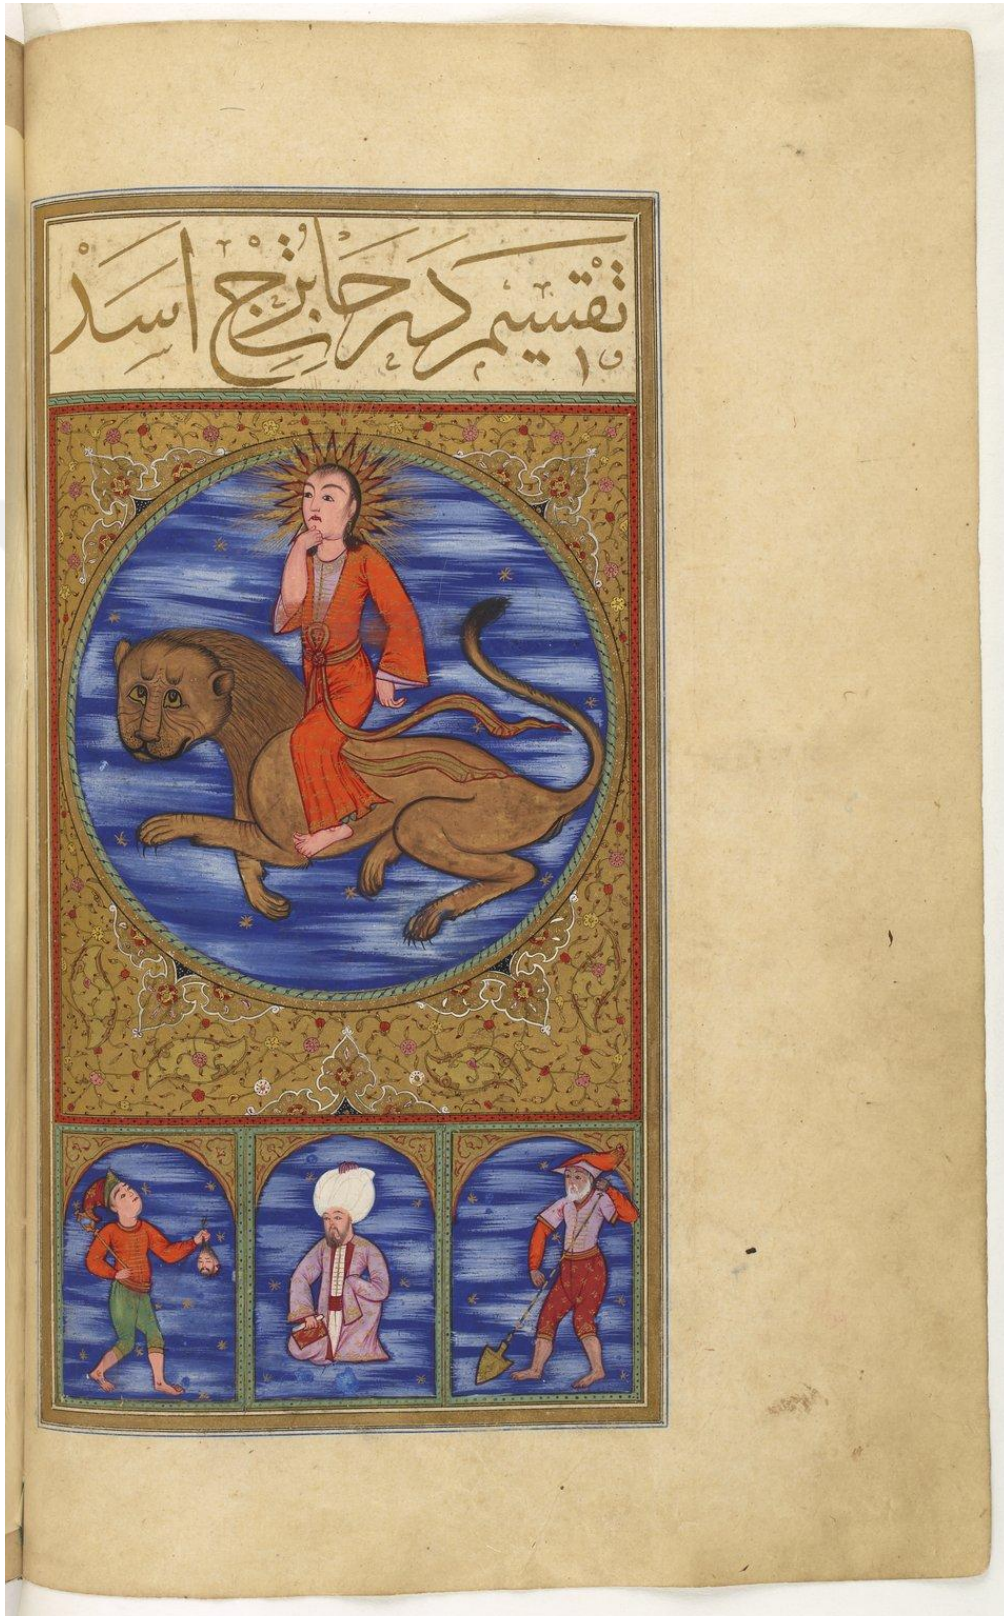 تقسيم درجات برج اسد